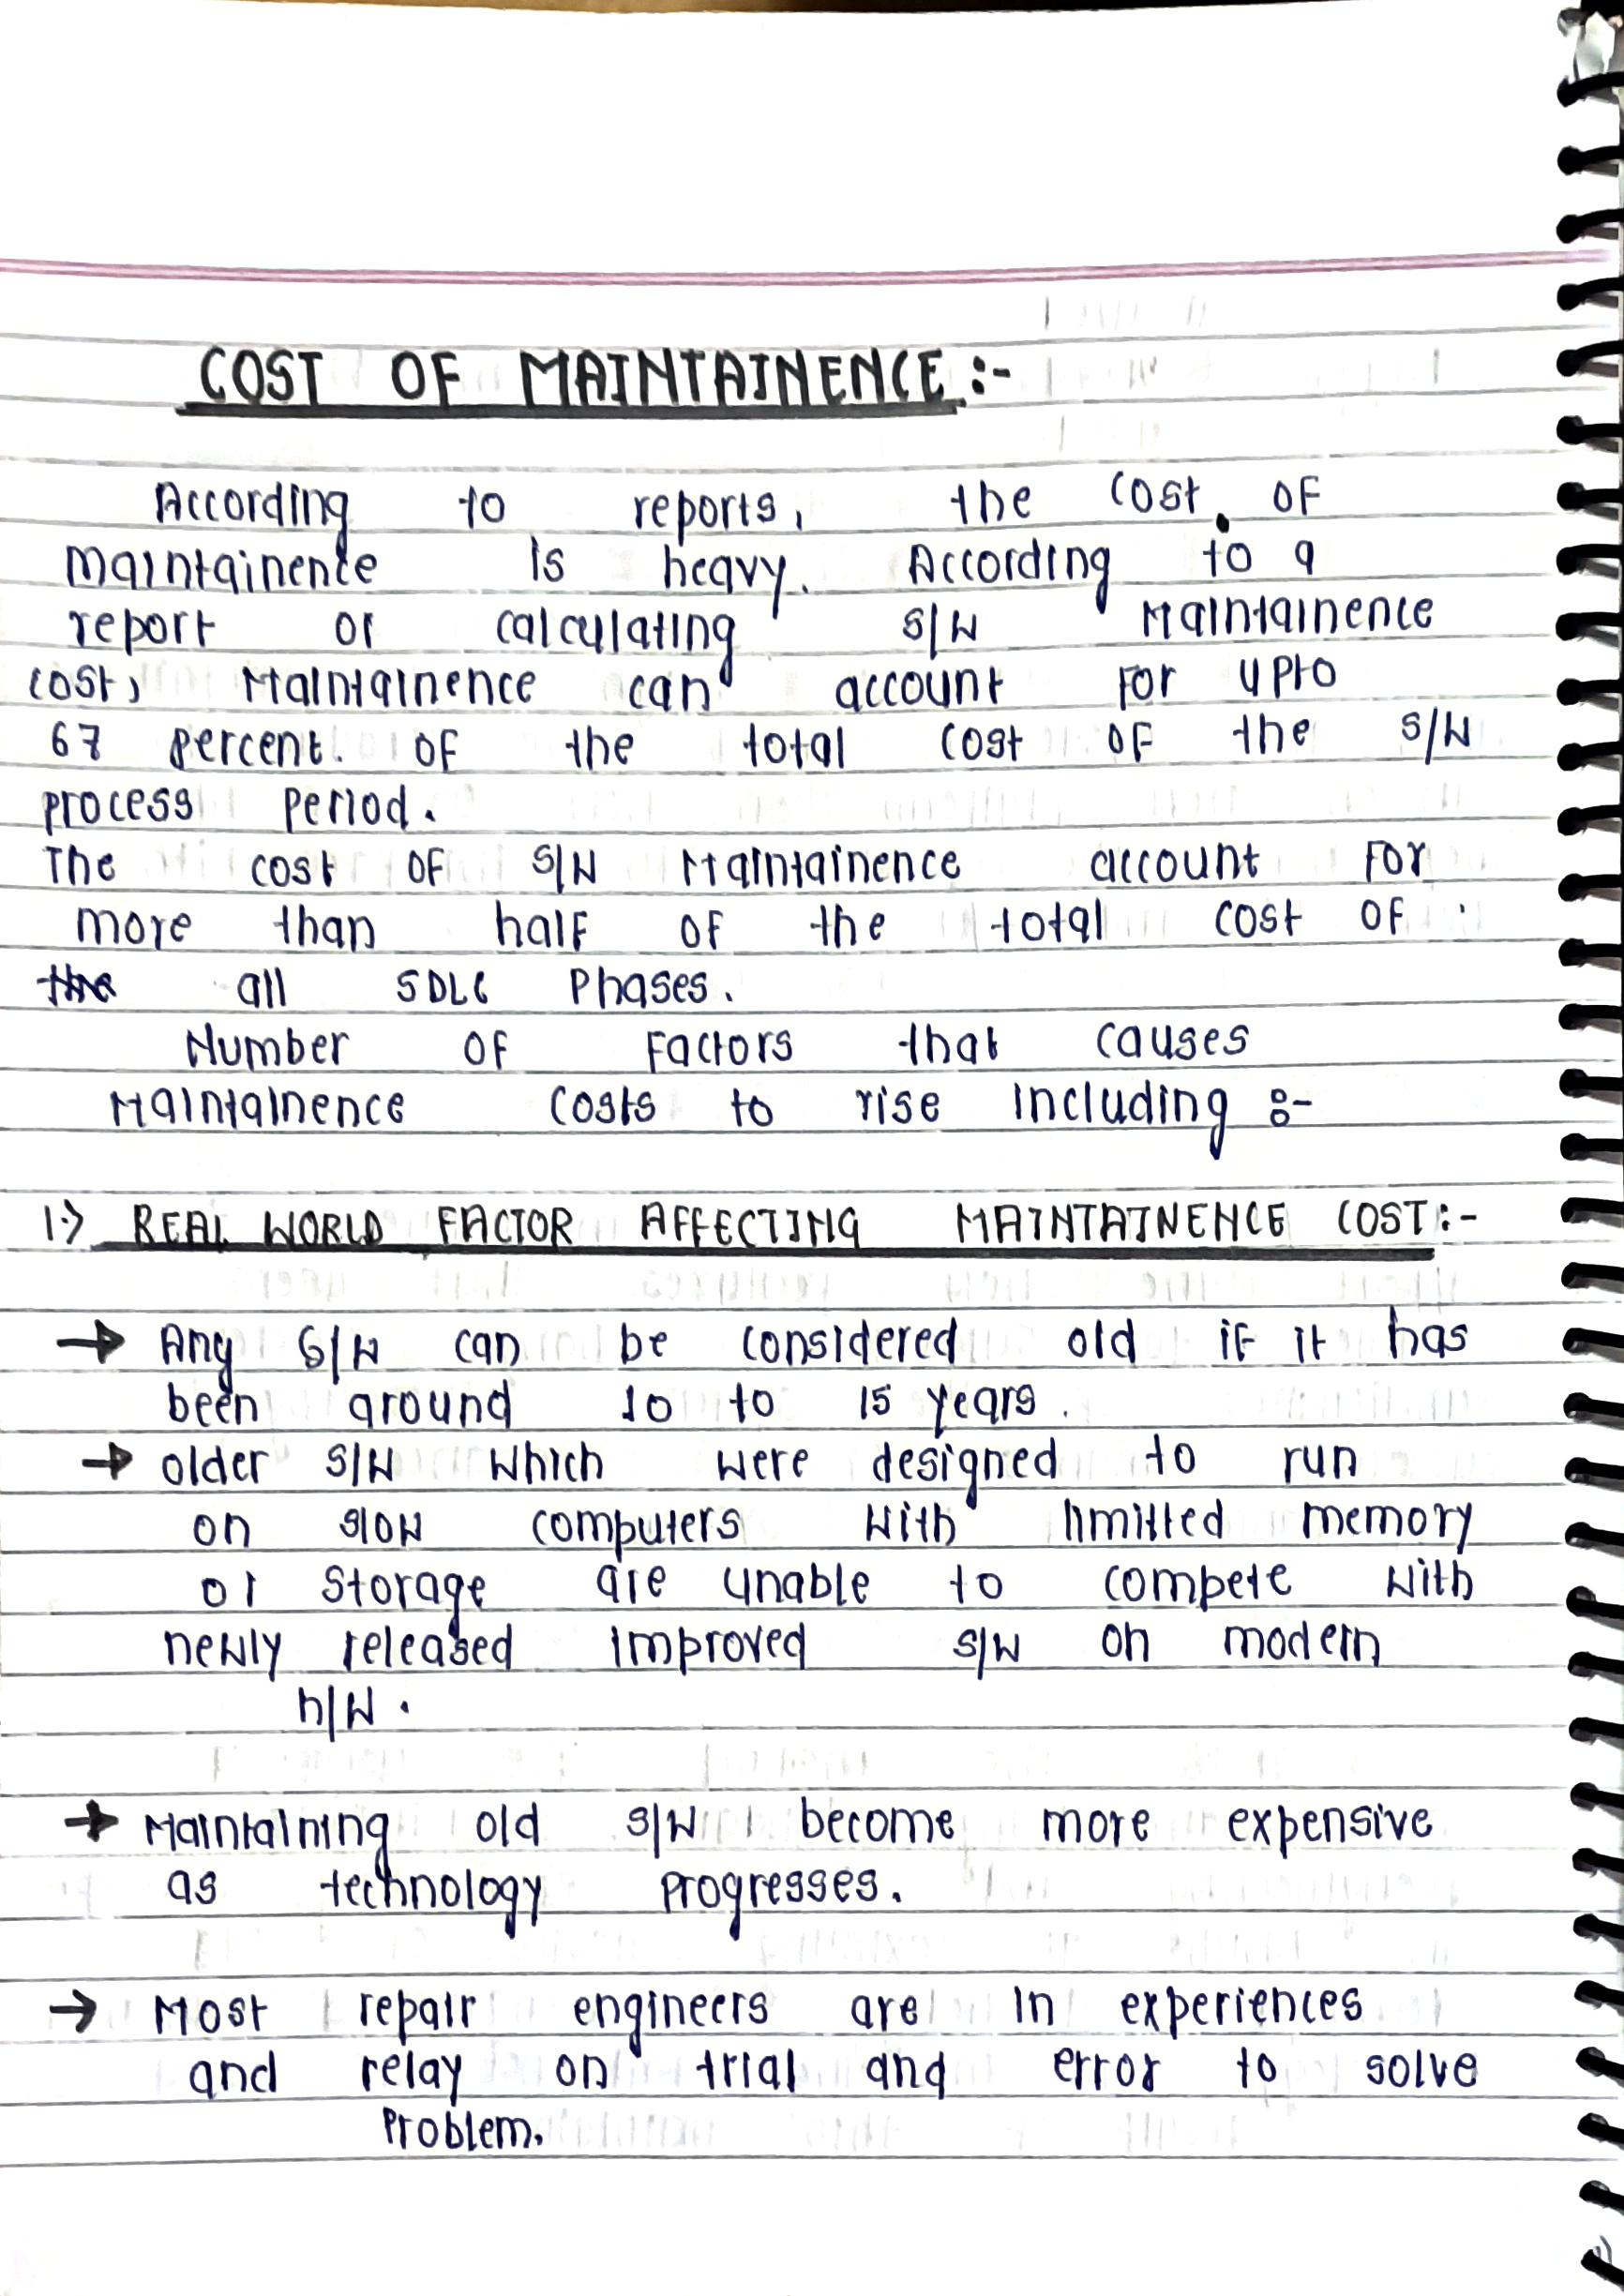 COST OF MAINTAINENCE :-
According to reports, the cost of
maintainence is heavy. According to a
report or calculating s/w Maintainence
cost, Maintainence can account for upto
67 percent. of the total cost of the s/w
process period.
The cost of s/w Maintainence account for
more than half of the total cost of
the all SDLC Phases.
Number of factors that causes
Maintainence costs to rise including :-
1.) REAL WORLD FACTOR AFFECTING MAINTAINENCE COST :-
→ Any s/w can be considered old if it has
been around 10 to 15 years.
→ older s/w which were designed to run
on slow computers with limitted memory
or storage are unable to compete with
newly released improved s/w on modern
h/w.
→ Maintaining old s/w become more expensive
as technology progresses.
→ Most repair engineers are in experiences
and relay on trial and error to solve
Problem.